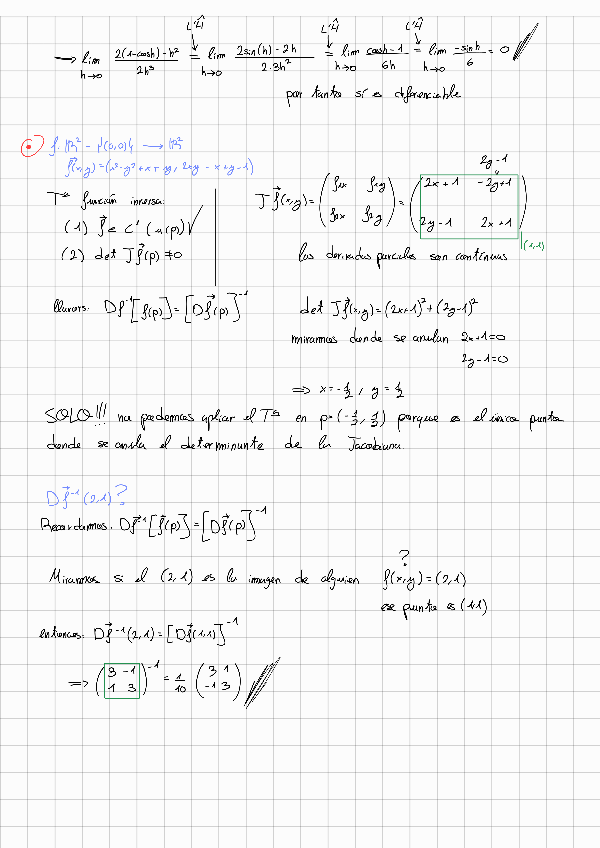 L'Ĥ L'Ĥ L'Ĥ
→ lim h→0 2(1-cosh)-h² / 2h³ = lim h→0 2sin(h)-2h / 2·3h² = lim h→0 cosh-1 / 6h = lim h→0 -sinh / 6 = 0
por tanto sí es diferenciable
f: ℝ² - {(0,0)} → ℝ²
f(x,y)=(x²-y²+x+y, 2xy-x+y-1)
Tᵐᵃ función inversa:
(1) f ∈ C¹ (u(p)) ✓
(2) det Jf(p) ≠ 0
llavors: Df⁻¹[f(p)] = [Df(p)]⁻¹
2y-1
Jf(x,y) = ( f1x f1y ; f2x f2y ) = ( 2x+1 -2y+1 ; 2y-1 2x+1 )
(1,1)
las derivadas parciales son continuas
det Jf(x,y) = (2x+1)² + (2y-1)²
miramos donde se anulan 2x+1=0
2y-1=0
⇒ x=-1/2, y=1/2
SOLO!!! no podemos aplicar el Tᵐᵃ en p=(-1/2, 1/2) porque es el único punto
donde se anula el determinante de la Jacobiana.
Df⁻¹(2,1)?
Recordamos: Df⁻¹[f(p)] = [Df(p)]⁻¹
?
Miramos si el (2,1) es la imagen de alguien f(x,y)=(2,1)
ese punto es (1,1)
entonces: Df⁻¹(2,1) = [Df(1,1)]⁻¹
⇒ ( 3 -1 ; 1 3 )⁻¹ = 1/10 ( 3 1 ; -1 3 )